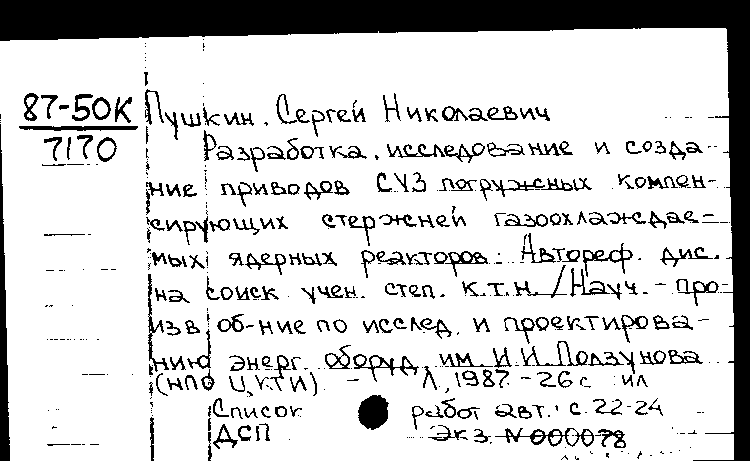 87-50К Пушкин, Сергей Николаевич
7170 Разработка, исследование и созда-
ние приводов СУЗ погружных компен-
сирующих стержней газоохлаждае-
мых ядерных реакторов: Автореф. дис.
на соиск. учен. степ. к.т.н. / Науч.-про-
изв. об-ние по исслед. и проектирова-
нию энерг. оборуд. им. И.И. Ползунова
(НПО ЦКТИ) - Л, 1987. - 26 с ил
Список работ авт.: с. 22-24
ДСП Экз. N 000078